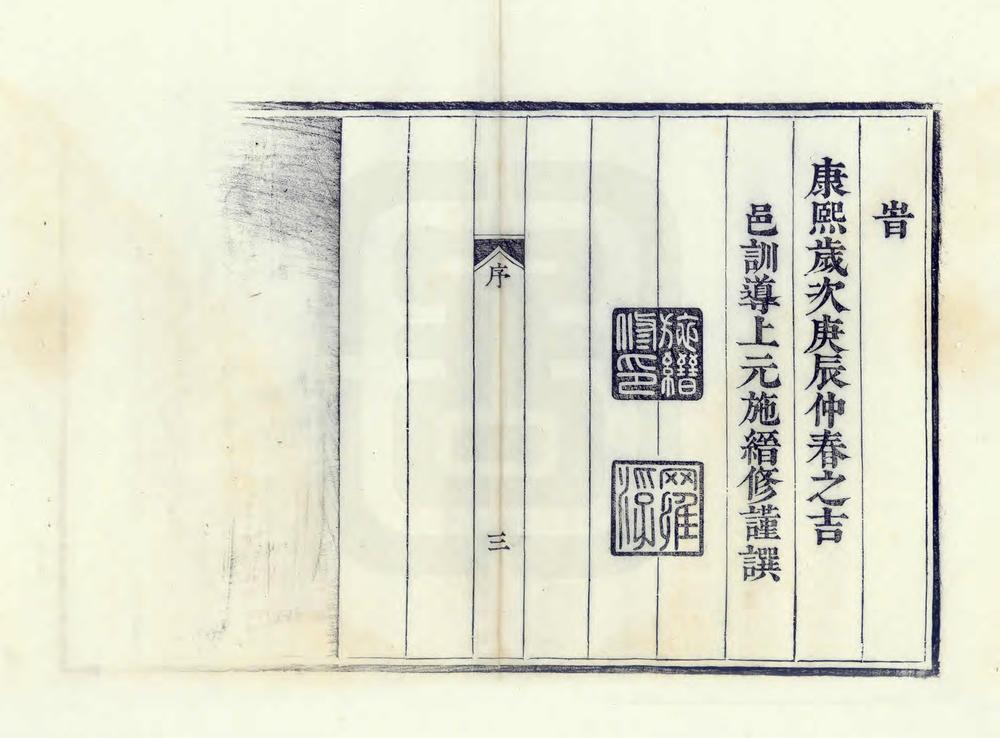 旹
康熙歲次庚辰仲春之吉
邑訓導上元施縉修謹譔
施縉
修印
序
三